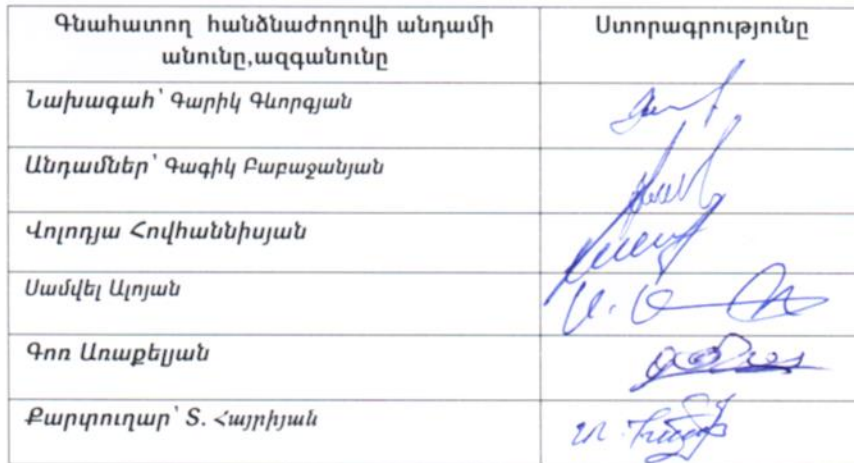 Գնահատող հանձնաժողովի անդամի Ստորագրությունը
անունը,ազգանունը
Նախագահ՝ Գարիկ Գևորգյան
Անդամներ՝ Գագիկ Բաբաջանյան
Վոլոդյա Հովհաննիսյան
Սամվել Ալոյան
Գոռ Առաքելյան
Քարտուղար՝ Տ. Հայրիյան